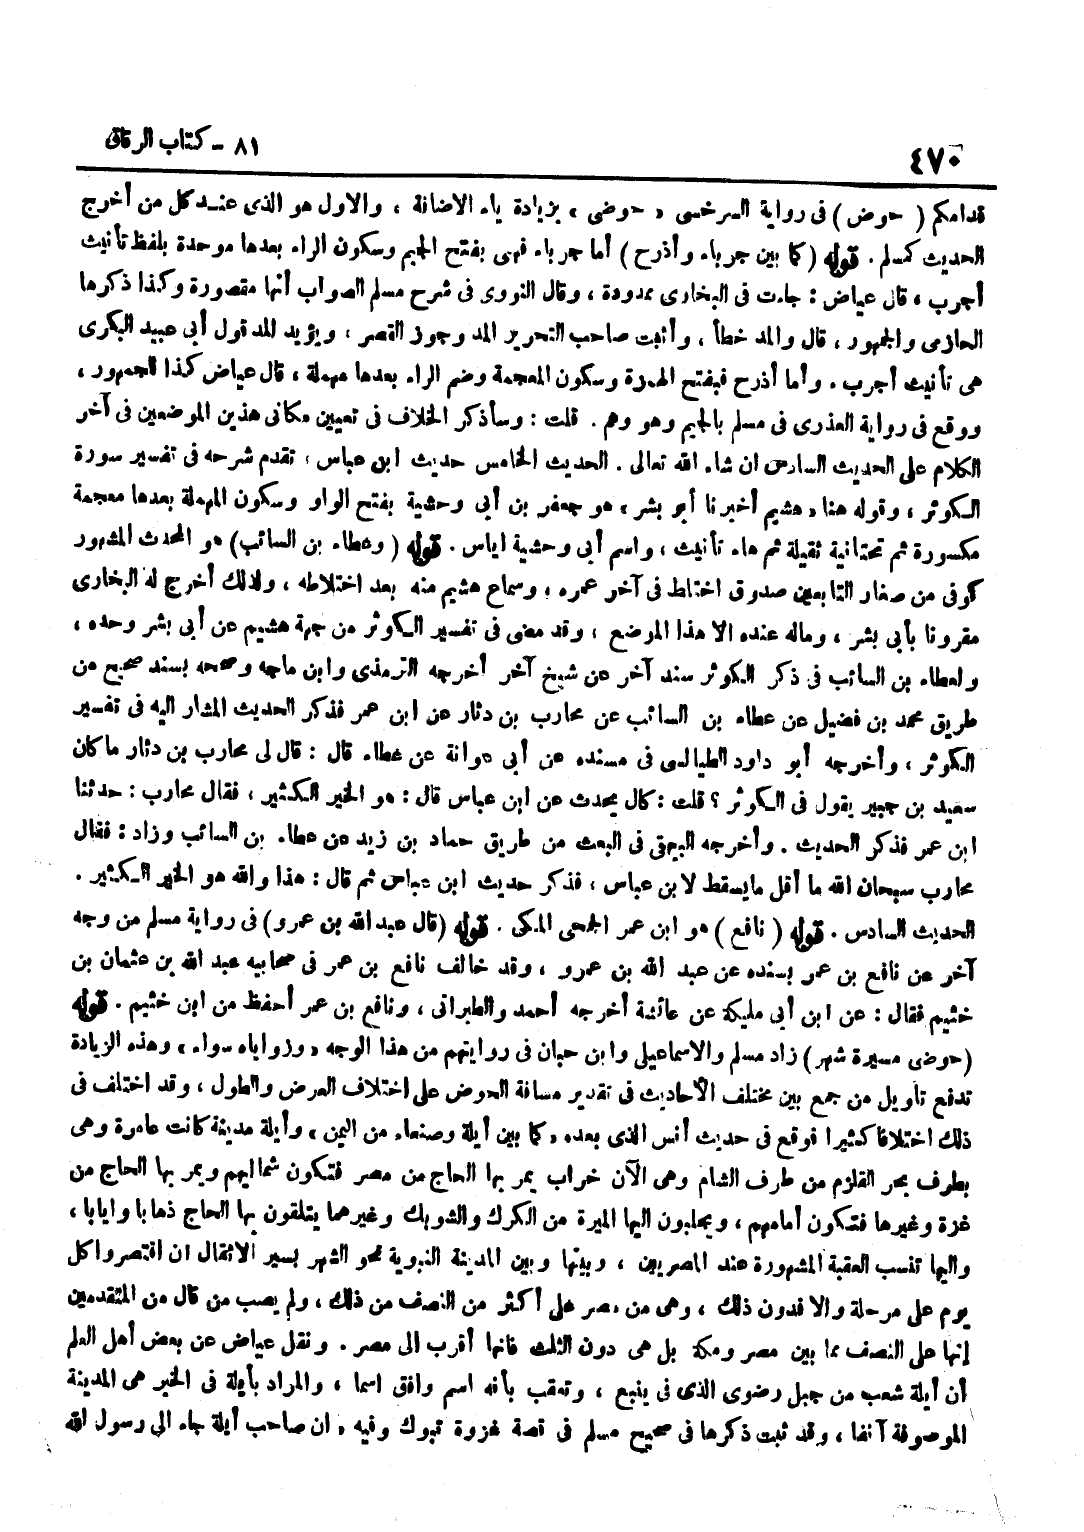 ٤٧٠
٨١ - كتاب الرقاق
قدامكم ( حوض ) فى رواية السرخسى « حوضى » بزيادة ياء الاضافة ، والاول هو الذى عند كل من أخرج
الحديث كمسلم . قوله ( كما بين جرباء وأذرح ) أما جرباء فهى بفتح الجيم وسكون الراء بعدها موحدة بلفظ تأنيث
أجرب ، قال عياض : جاءت فى البخارى ممدودة ، وقال النووى فى شرح مسلم الصواب أنها مقصورة وكذا ذكرها
الحازمى والجمهور ، قال والمد خطأ ، وأثبت صاحب التحرير المد وجوز القصر ، ويؤيد المد قول أبى عبيد البكرى
هى تأنيث أجرب . وأما أذرح فبفتح الهمزة وسكون المعجمة وضم الراء بعدها مهملة ، قال عياض كذا للجمهور ،
ووقع فى رواية العذرى فى مسلم بالجيم وهو وهم . قلت : وسأذكر الخلاف فى تعيين مكانى هذين الموضعين فى آخر
الكلام على الحديث السادس ان شاء الله تعالى . الحديث الخامس حديث ابن عباس ، تقدم شرحه فى تفسير سورة
الكوثر ، وقوله هنا « هشيم أخبرنا أبو بشر » هو جعفر بن أبى وحشية بفتح الواو وسكون المهملة بعدها معجمة
مكسورة ثم تحتانية ثقيلة ثم هاء تأنيث ، واسم أبى وحشية اياس . قوله ( وعطاء بن السائب ) هو المحدث المشهور
كوفى من صغار التابعين صدوق اختلط فى آخر عمره ، وسماع هشيم منه بعد اختلاطه ، ولذلك أخرج له البخارى
مقرونا بأبى بشر ، وماله عنده الا هذا الموضع ، وقد مضى فى تفسير الكوثر من جهة هشيم عن أبى بشر وحده ،
ولعطاء بن السائب فى ذكر الكوثر سند آخر عن شيخ آخر أخرجه الترمذى وابن ماجه وصححه بسند صحيح من
طريق محمد بن فضيل عن عطاء بن السائب عن محارب بن دثار عن ابن عمر فذكر الحديث المشار اليه فى تفسير
الكوثر ، وأخرجه أبو داود الطيالسى فى مسنده عن أبى عوانة عن عطاء قال : قال لى محارب بن دثار ما كان
سعيد بن جبير يقول فى الكوثر ؟ قلت : كان يحدث عن ابن عباس قال : هو الخير الكثير ، فقال محارب : حدثنا
ابن عمر فذكر الحديث . وأخرجه البيهقى فى البعث من طريق حماد بن زيد عن عطاء بن السائب وزاد : فقال
محارب سبحان الله ما أقل ما يسقط لابن عباس ، فذكر حديث ابن عباس ثم قال : هذا والله هو الخير الكثير .
الحديث السادس . قوله ( نافع ) هو ابن عمر الجمحى المكى . قوله ( قال عبد الله بن عمرو ) فى رواية مسلم من وجه
آخر عن نافع بن عمر بسنده عن عبد الله بن عمرو ، وقد خالف نافع بن عمر فى صحابيه عبد الله بن عثمان بن
خثيم فقال : عن ابن أبى مليكة عن عائشة أخرجه أحمد والطبرانى ، ونافع بن عمر أحفظ من ابن خثيم . قوله
( حوضى مسيرة شهر ) زاد مسلم والاسماعيلى وابن حبان فى روايتهم من هذا الوجه « وزواياه سواء » وهذه الزيادة
تدفع تأويل من جمع بين مختلف الأحاديث فى تقدير مسافة الحوض على اختلاف العرض والطول ، وقد اختلف فى
ذلك اختلافا كثيرا فوقع فى حديث أنس الذى بعده « كما بين أيلة وصنعاء من اليمن » وأيلة مدينة كانت عامرة وهى
بطرف بحر القلزم من طرف الشام وهى الآن خراب يمر بها الحاج من مصر فتكون شماليهم ويمر بها الحاج من
غزة وغيرها فتكون أمامهم ، ويجلبون اليها الميرة من الكرك والشوبك وغيرهما يتلقون بها الحاج ذهابا وايابا ،
واليها تنسب العقبة المشهورة عند المصريين ، وبينها وبين المدينة النبوية نحو الشهر بسير الاثقال ان اقتصروا كل
يوم على مرحلة والا فدون ذلك ، وهى من مصر على أكثر من النصف من ذلك ، ولم يصب من قال من المتقدمين
إنها على النصف مما بين مصر ومكة بل هى دون الثلث فانها أقرب الى مصر . ونقل عياض عن بعض أهل العلم
أن أيلة شعب من جبل رضوى الذى فى ينبع ، وتعقب بأنه اسم وافق اسما ، والمراد بأيلة فى الخبر هى المدينة
الموصوفة آنفا ، وقد ثبت ذكرها فى صحيح مسلم فى قصة غزوة تبوك وفيه « ان صاحب أيلة جاء الى رسول الله